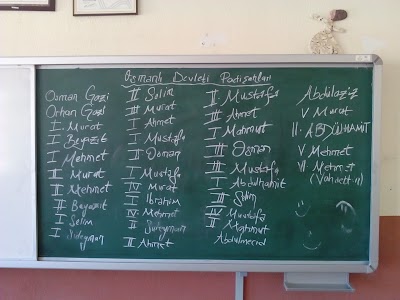 Osmanlı Devleti Padişahları
Osman Gazi
Orhan Gazi
I. Murat
I Beyazıt
I Mehmet
II Murat
II Mehmet
II Beyazıt
I Selim
I Süleyman
II Selim
III Murat
I Ahmet
I Mustafa
II Osman
I Mustafa
IV Murat
I İbrahim
IV Mehmet
II Süleyman
II Ahmet
II Mustafa
III Ahmet
I Mahmut
III Osman
III Mustafa
I Abdülhamit
III Selim
IV Mustafa
II Mahmut
Abdulmecid
Abdülaziz
V Murat
II. ABDÜLHAMİT
V Mehmet
VI Mehmet
(Vahdettin)